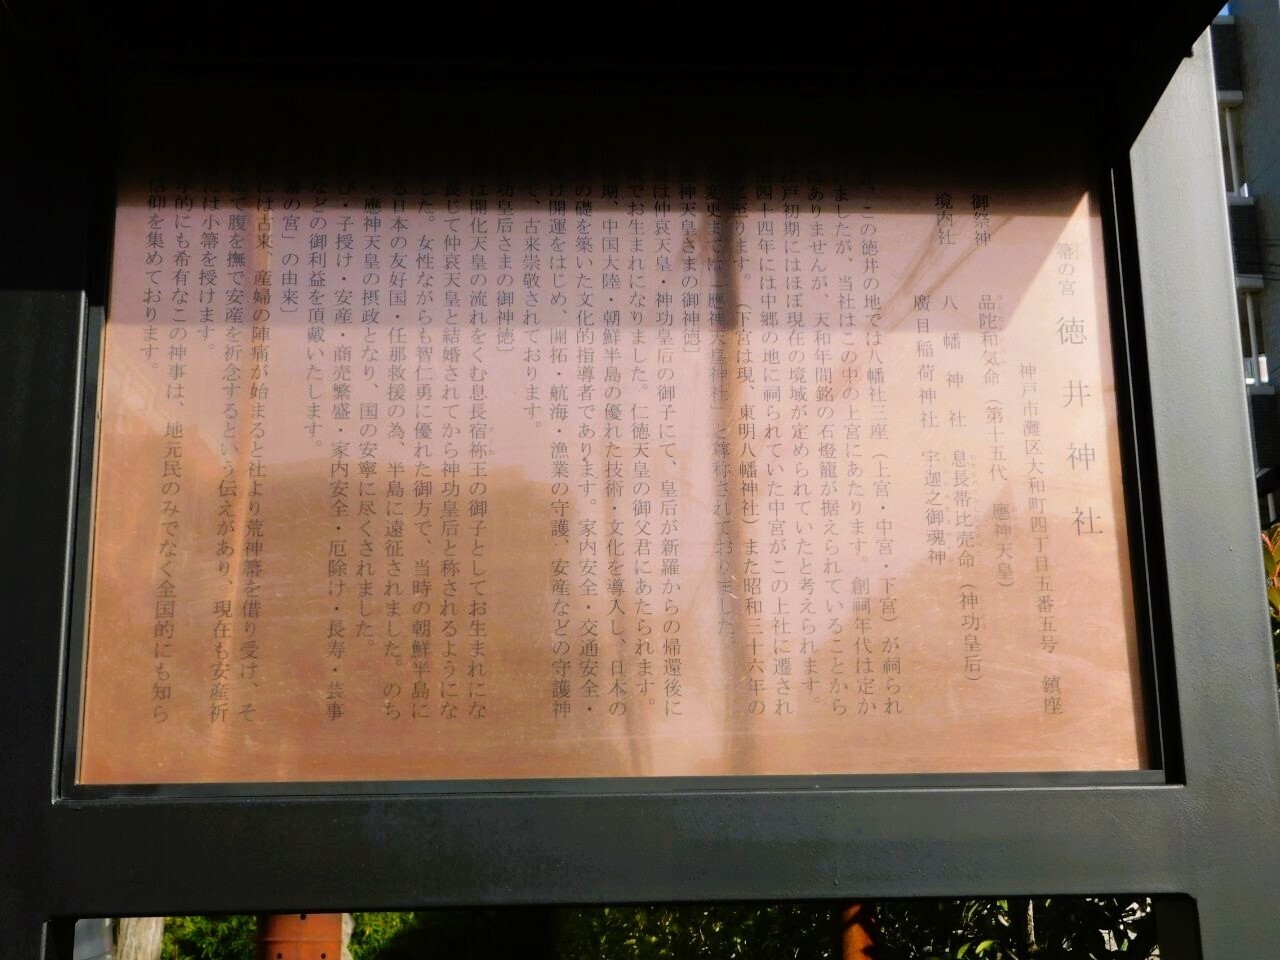 箒の宮 徳井神社
神戸市灘区大和町四丁目五番五号 鎮座
御祭神 品陀和気命（第十五代 應神天皇）
ほんだわけのみこと
境内社 八幡神社 息長帯比売命（神功皇后）
廣目稲荷神社 宇迦之御魂神
、この徳井の地では八幡社三座（上宮・中宮・下宮）が祀られ
いましたが、当社はこの中の上宮にあたります。創祠年代は定か
はありませんが、天和年間銘の石燈籠が据えられていることから
江戸初期にはほぼ現在の境域が定められていたと考えられます。
四十四年には中郷の地に祀られていた中宮がこの上社に遷され
至ります。（下宮は現、東明八幡神社）また昭和三十六年の
変更までは「應神天皇神社」と尊称されておりました。
應神天皇さまの御神徳］
は仲哀天皇・神功皇后の御子にて、皇后が新羅からの帰還後に
でお生まれになりました。仁徳天皇の御父君にあたられます。
期、中国大陸・朝鮮半島の優れた技術・文化を導入し、日本の
の礎を築いた文化的指導者であります。家内安全・交通安全・
け開運をはじめ、開拓・航海・漁業の守護、安産などの守護神
て、古来崇敬されております。
功皇后さまの御神徳］
は開化天皇の流れをくむ息長宿祢王の御子としてお生まれにな
すくね
長じて仲哀天皇と結婚されてから神功皇后と称されるようにな
した。女性ながらも智仁勇に優れた御方で、当時の朝鮮半島に
る日本の友好国・任那救援の為、半島に遠征されました。のち
應神天皇の摂政となり、国の安寧に尽くされました。
び・子授け・安産・商売繁盛・家内安全・厄除け・長寿・芸事
などの御利益を頂戴いたします。
箒の宮」の由来］
には古来、産婦の陣痛が始まると社より荒神箒を借り受け、そ
にて腹を撫で安産を祈念するという伝えがあり、現在も安産祈
には小箒を授けます。
学的にも希有なこの神事は、地元民のみでなく全国的にも知ら
信仰を集めております。